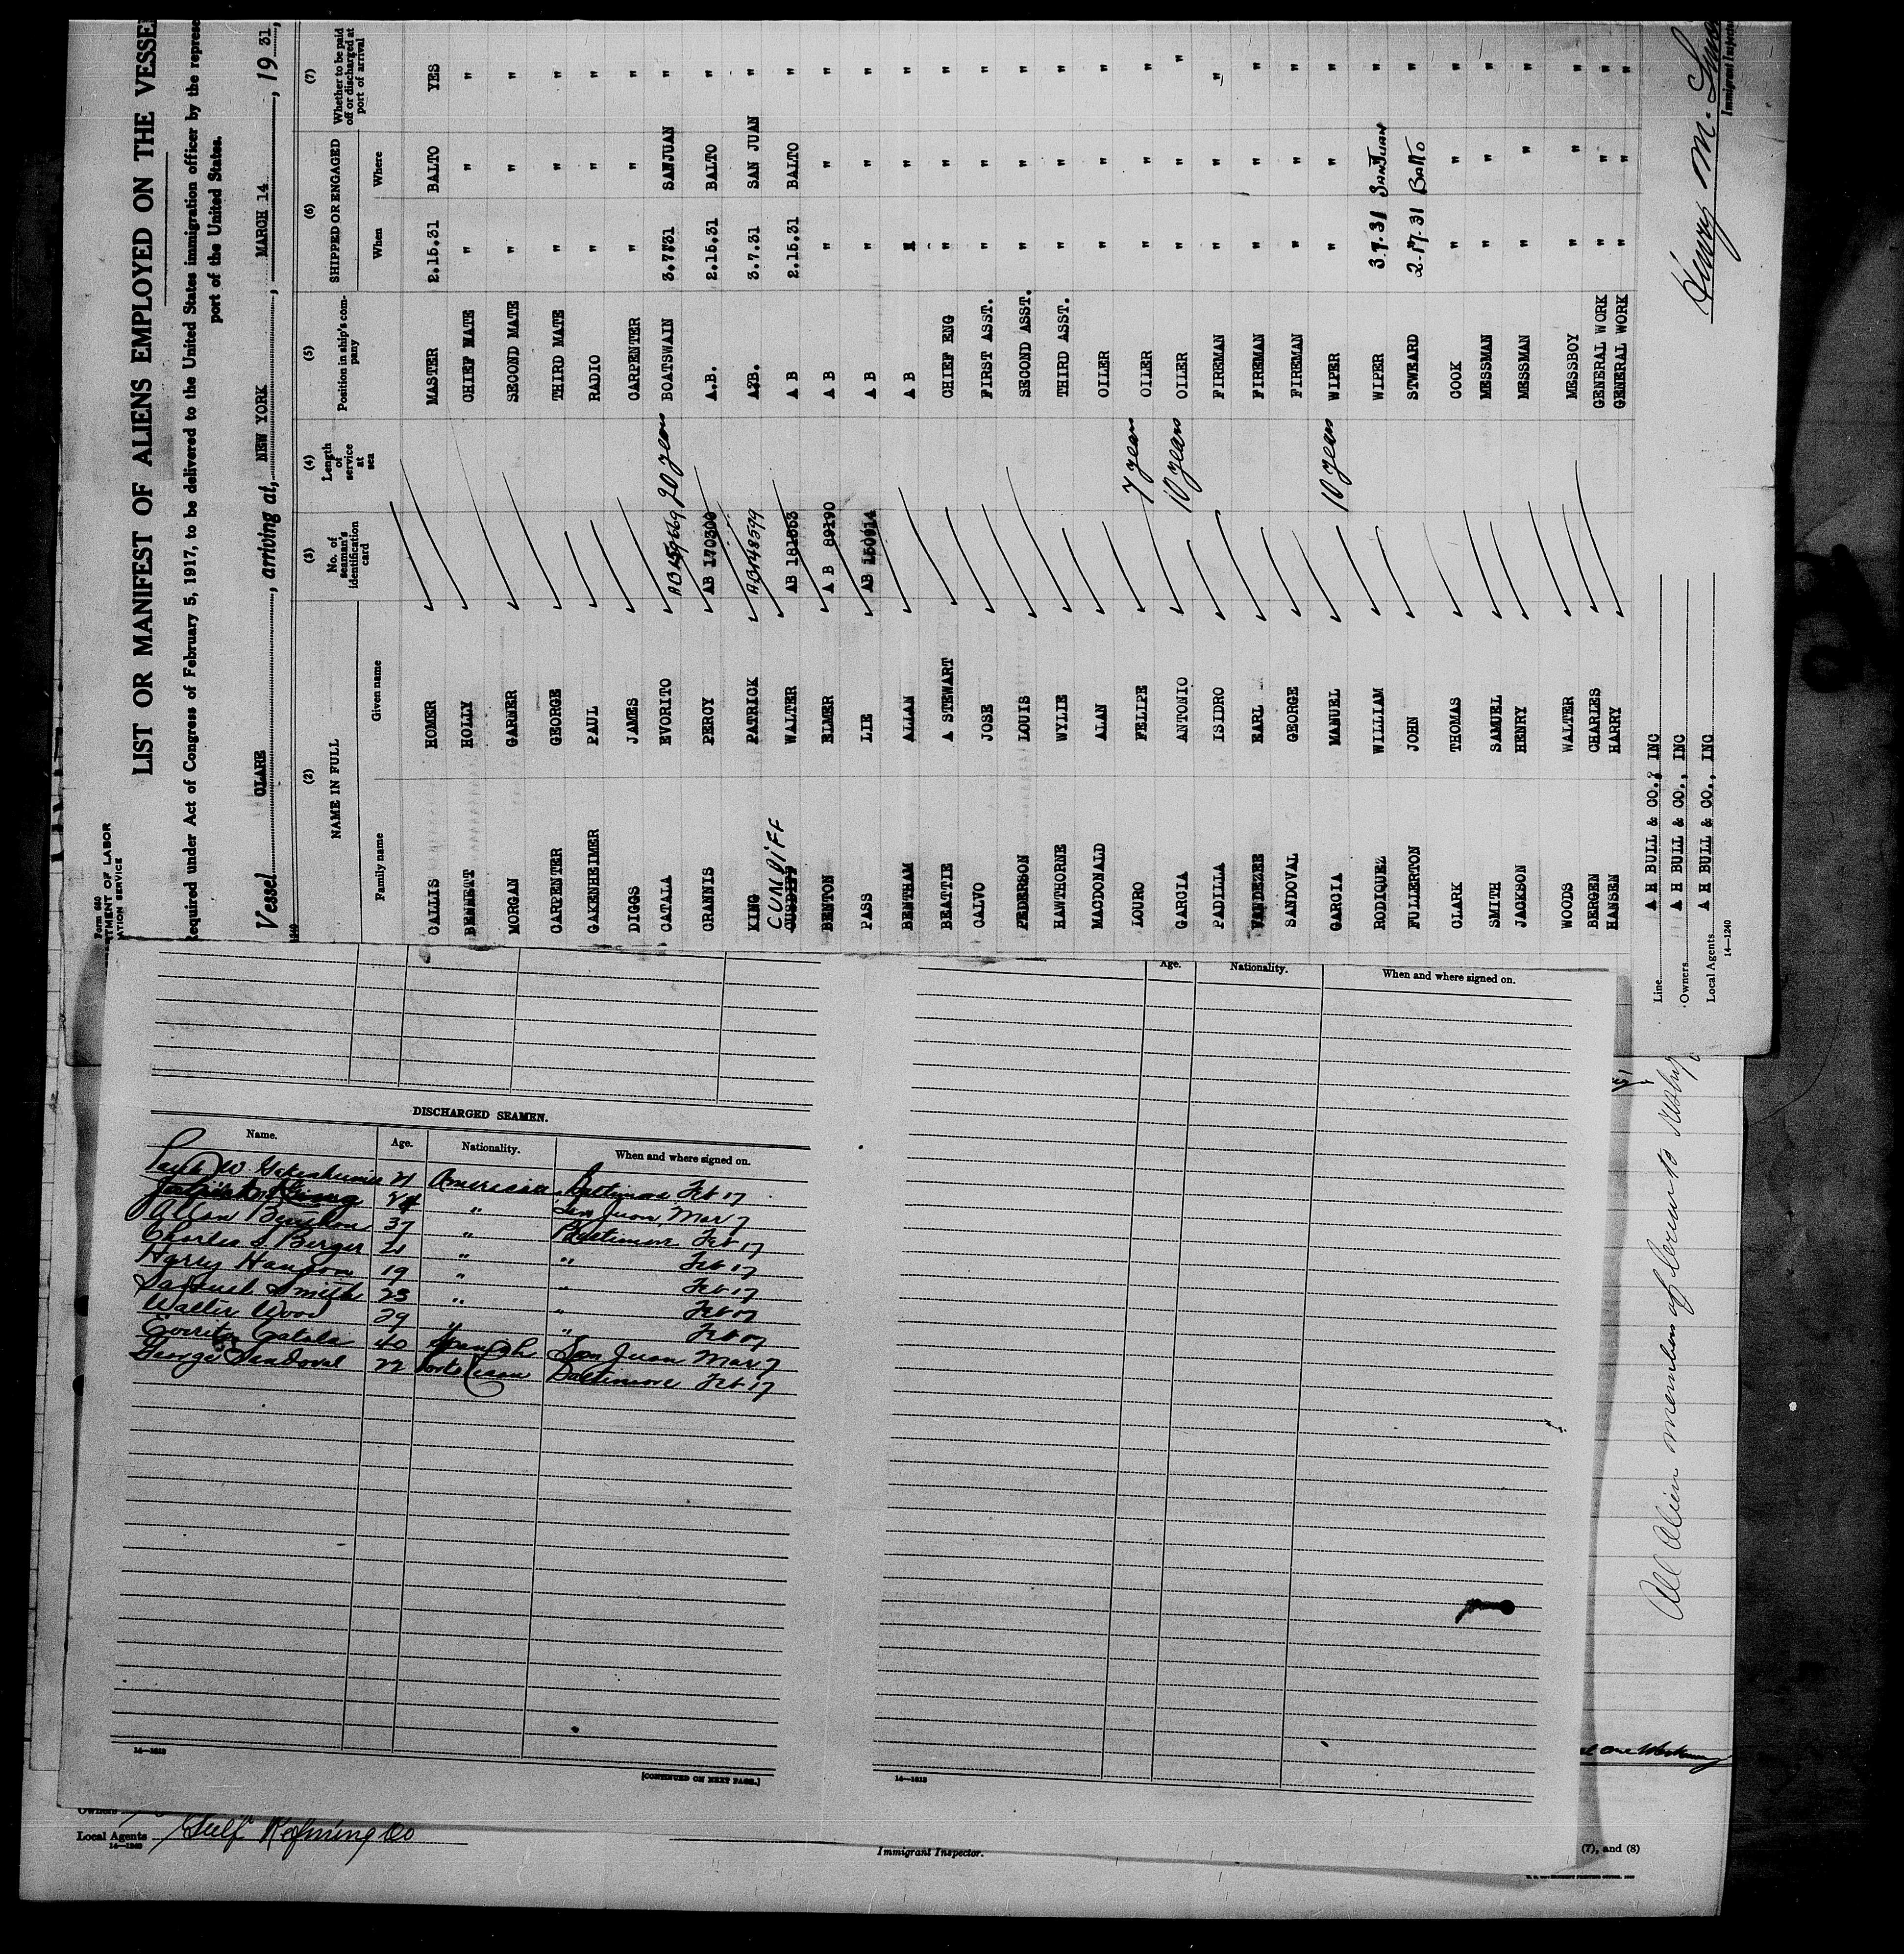 Form 680
RTMENT OF LABOR
ATION SERVICE
LIST OR MANIFEST OF ALIENS EMPLOYED ON THE VESSE
Required under Act of Congress of February 5, 1917, to be delivered to the United States immigration officer by the repres
port of the United States.
Vessel CLARE, arriving at, NEW YORK, MARCH 14, 19 31,
(2) (3) (4) (5) (6) (7)
NAME IN FULL No. of seaman's identification card Length of service at sea Position in ship's company SHIPPED OR ENGAGED Whether to be paid off or discharged at port of arrival
Family name Given name When Where
CALLIS HOMER MASTER 2.15.31 BALTO YES
BENNETT HOLLY CHIEF MATE " " "
MORGAN GARNER SECOND MATE " " "
CARPENTER GEORGE THIRD MATE " " "
GAKENHEIMER PAUL RADIO " " "
DIGGS JAMES CARPENTER " " "
CATALA EVORITO 20 years BOATSWAIN 3.7.31 SANJUAN "
GRANNIS PERCY AB 170300 A.B. 2.15.31 BALTO "
KING PATRICK AB 148599 A.B. 3.7.31 SAN JUAN "
CUNDIFF WALTER AB 181553 A B 2.15.31 BALTO "
BENTON ELMER A B 89190 A B " " "
PASS LIE AB 150914 A B " " "
BENTHAM ALLAN A B " " "
BEATTIE A STEWART CHIEF ENG " " "
CALVO JOSE FIRST ASST. " " "
PEDERSON LOUIS SECOND ASST. " " "
HAWTHORNE WYLIE THIRD ASST. " " "
MACDONALD ALAN OILER " " "
LOURO FELIPE 7 years OILER " " "
GARCIA ANTONIO 10 years OILER " " "
PADILLA ISIDRO FIREMAN " " "
VANDEZEE EARL FIREMAN " " "
SANDOVAL GEORGE FIREMAN " " "
GARCIA MANUEL 10 years WIPER " " "
RODIQUEZ WILLIAM WIPER 3.7.31 SANJUAN "
FULLERTON JOHN STWEARD 2-17.31 BALTO "
CLARK THOMAS COOK " " "
SMITH SAMUEL MESSMAN " " "
JACKSON HENRY MESSMAN " " "
WOODS WALTER MESSBOY " " "
BERGEN CHARLES GENERAL WORK " " "
HANSEN HARRY GENERAL WORK " " "
Line A H BULL & CO.? INC
Owners A H BULL & CO., INC
Local Agents A H BULL & CO., INC
14—1240
Henry M.
Immigrant Inspector
DISCHARGED SEAMEN.
Name. Age. Nationality. When and where signed on.
Paul W Gakenheimer 21 American Baltimore Feb 17
Patrick King " San Juan Mar 7
Allan Bentham 37 " Baltimore Feb 17
Charles S Berger 21 " " Feb 17
Harry Hanson 19 " " Feb 17
Samuel Smith 23 " " Feb 17
Walter Wood 29 " " Feb 17
Evorito Catala 40 Spanish San Juan Mar 7
George Sandoval 22 Porto Rican Baltimore Feb 17
14—1613
[CONTINUED ON NEXT PAGE.]
Age. Nationality. When and where signed on.
14—1613
All Alien members of crew to
Owners
Local Agents Gulf Refining Co
14—1240
Immigrant Inspector.
(7), and (8)